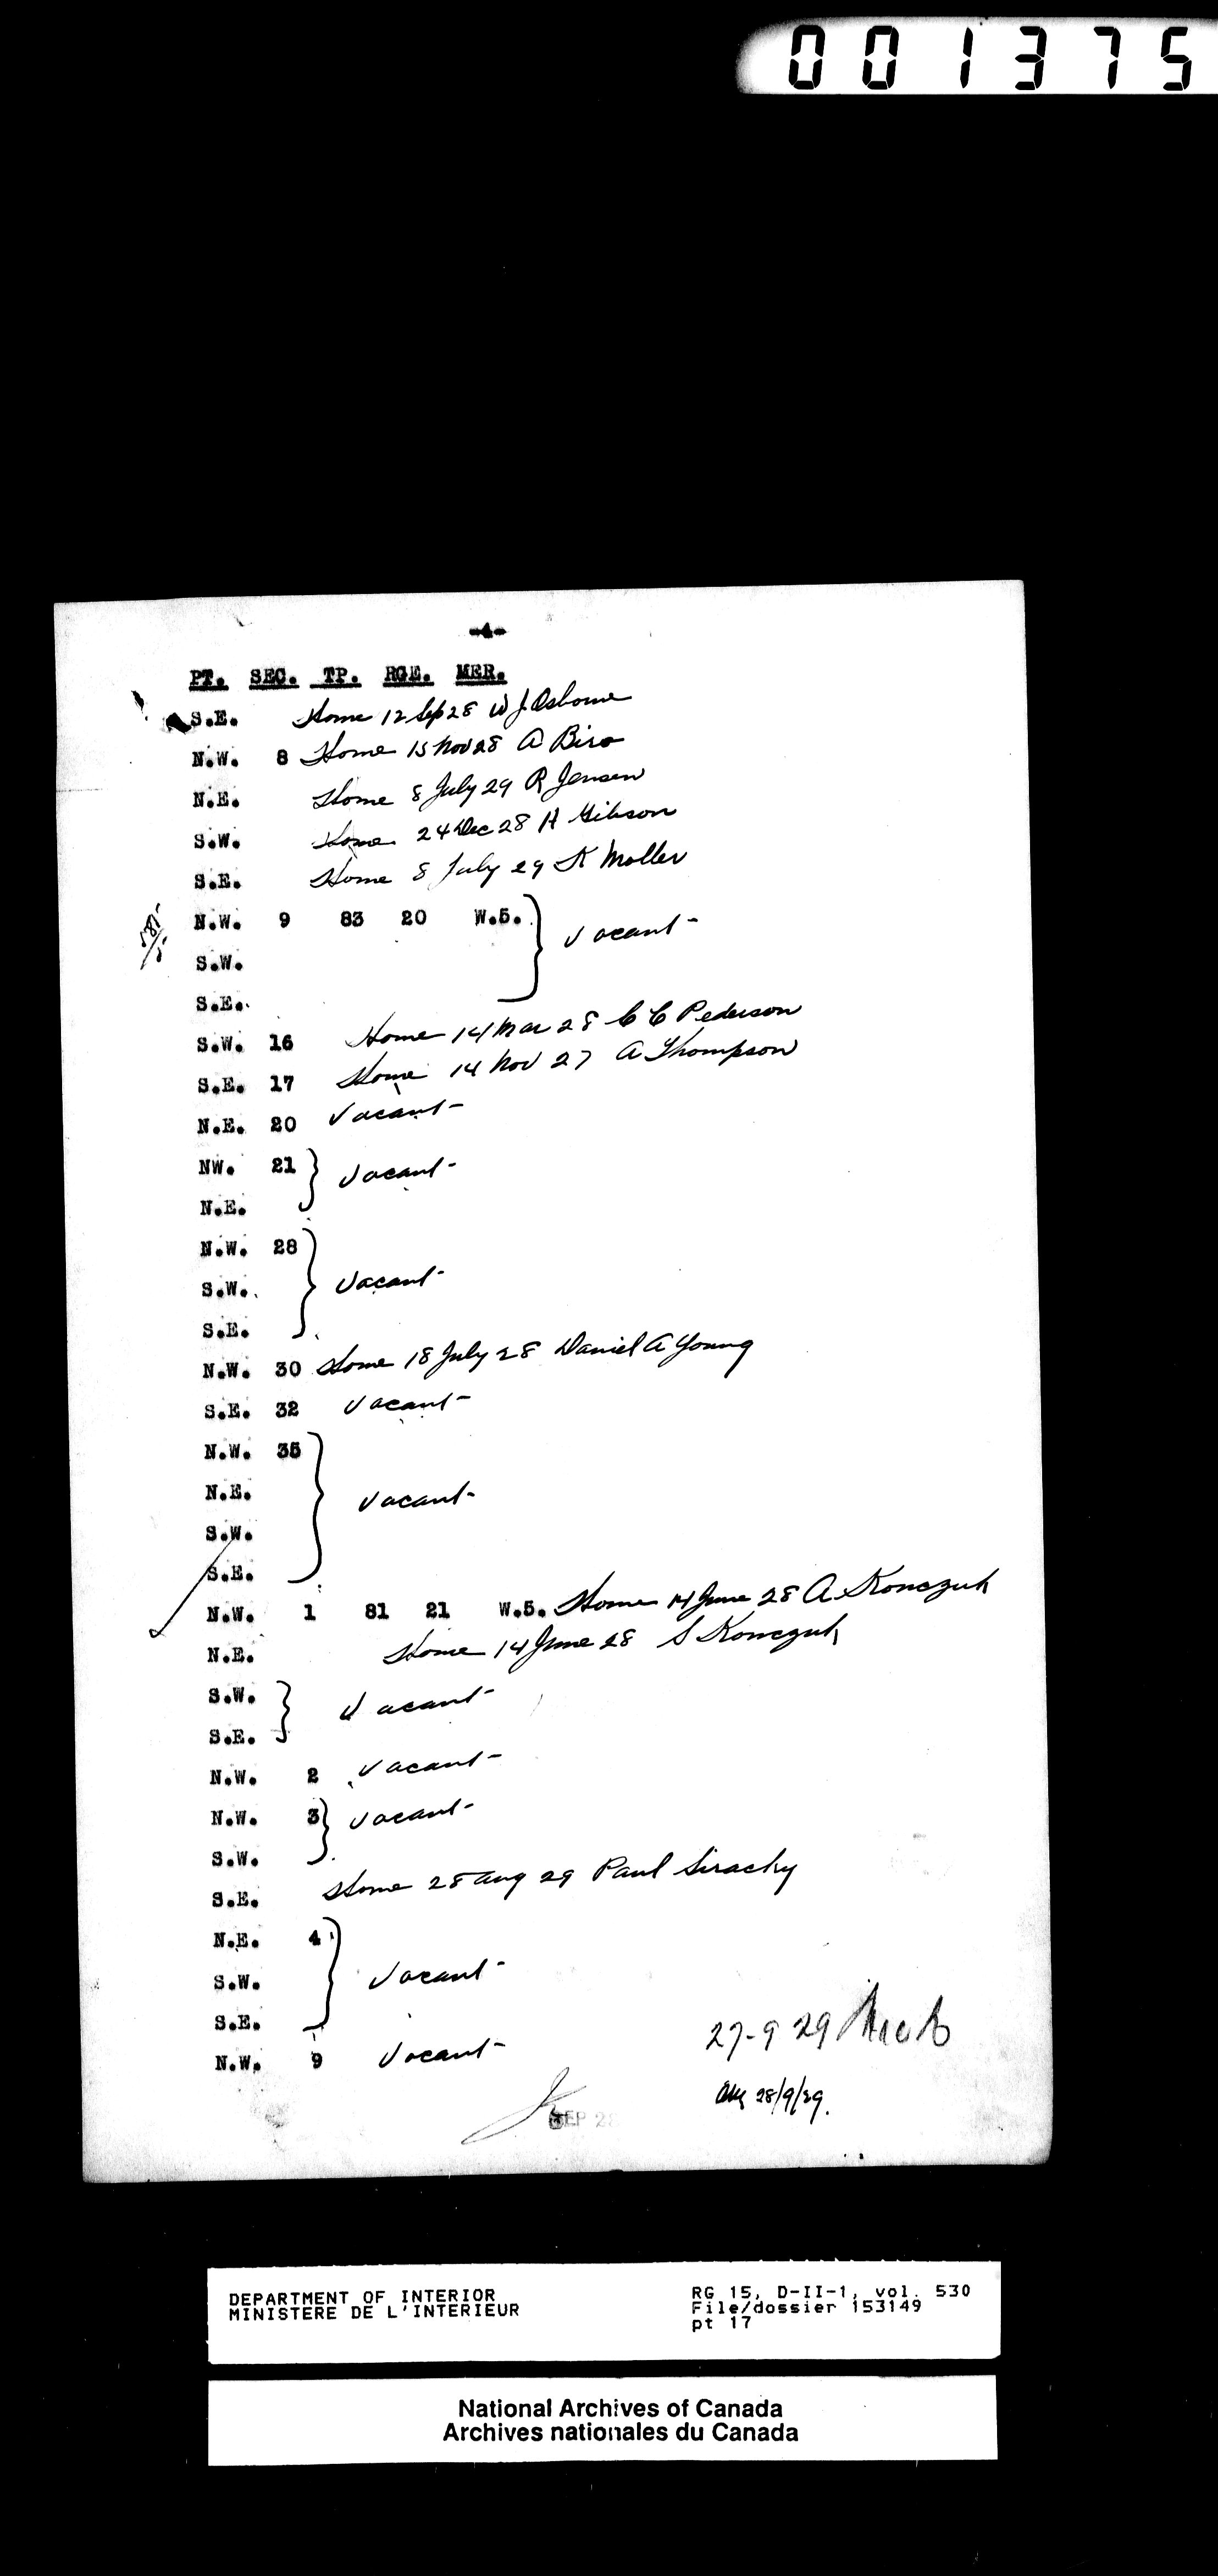 001375
-4-
PT. SEC. TP. RGE. MER.
S.E. Home 12 Sep 28 W J. Osborne
N.W. 8 Home 15 Nov 28 A Biro
N.E. Home 8 July 29 R Jensen
S.W. Home 24 Dec 28 H Gibson
S.E. Home 8 July 29 K Moller
N.W. 9 83 20 W.5. } Vacant-
S.W.
S.E.
S.W. 16 Home 14 Mar 28 C C Pederson
S.E. 17 Home 14 Nov 27 A Thompson
N.E. 20 Vacant-
NW. 21 } Vacant-
N.E.
N.W. 28
S.W. } Vacant-
S.E.
N.W. 30 Home 18 July 28 Daniel A Young
S.E. 32 Vacant-
N.W. 35
N.E. } Vacant-
S.W.
S.E.
N.W. 1 81 21 W.5. Home 14 June 28 A Konczuk
N.E. Home 14 June 28 S Konczuk
S.W. } Vacant-
S.E.
N.W. 2 Vacant-
N.W. 3 } Vacant-
S.W.
S.E. Home 28 Aug 29 Paul Sirachy
N.E. 4
S.W. } Vacant-
S.E.
N.W. 9 Vacant-
27-9 29
28/9/29.
SEP 28
DEPARTMENT OF INTERIOR
MINISTERE DE L'INTERIEUR
RG 15, D-II-1, vol. 530
File/dossier 153149
pt 17
National Archives of Canada
Archives nationales du Canada